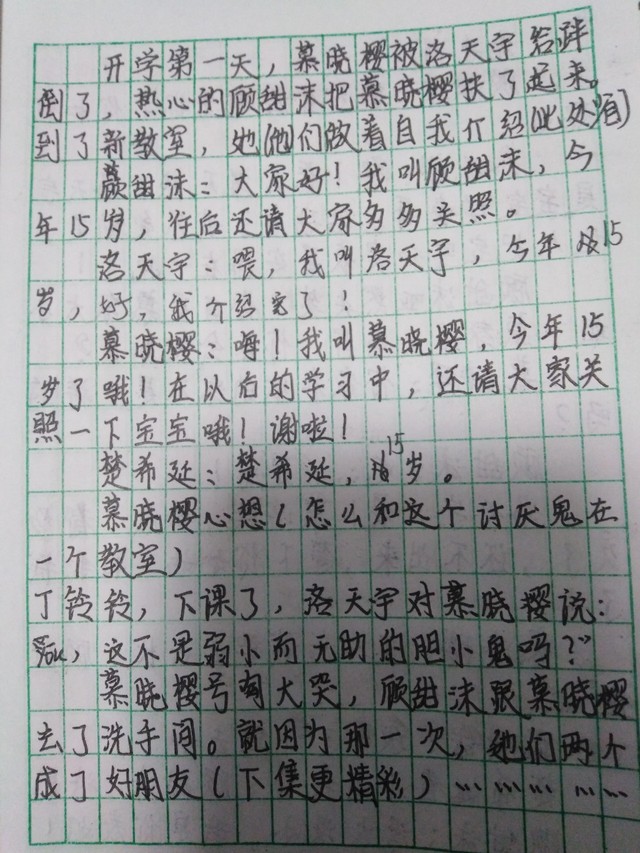 开学第一天，慕晓樱被洛天宇给绊
倒了，热心的顾甜沫把慕晓樱扶了起来。
到了新教室，她(他)们做着自我介绍(此处有)
顾甜沫：大家好！我叫顾甜沫，今
年15岁，往后还请大家多多关照。
洛天宇：喂，我叫洛天宇，今年15
岁，好，我介绍完了！
慕晓樱：嗨！我叫慕晓樱，今年15
岁了哦！在以后的学习中，还请大家关
照一下宝宝哦！谢啦！
楚希延：楚希延，15岁。
慕晓樱心想(怎么和这个讨厌鬼在
一个教室)
丁铃铃，下课了，洛天宇对慕晓樱说：
，这不是弱小而无助的胆小鬼吗？”
慕晓樱号啕大哭，顾甜沫跟慕晓樱
去了洗手间。就因为那一次，她们两个
成了好朋友(下集更精彩)………………